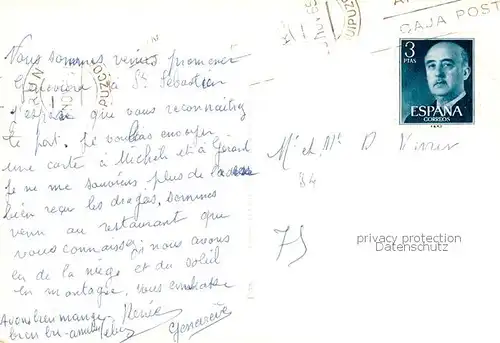 Nous sommes venus promener
Geneviève à St Sébastien
j'espère que vous reconnaitrez
le port. Je voulais envoyer
une carte à Michele et à Gérard
Je ne me souviens plus de l'adresse
bien reçu les dragées. Sommes
venu au restaurant que
vous connaissez, nous avons
eu de la neige et du soleil
en montagne. Vous embrasse
Avons bien mangé Renée
bien bu
Geneviève
CAJA POST
3
PTAS
ESPAÑA
CORREOS
Mr et Mme D
84
75
privacy protection
Datenschutz